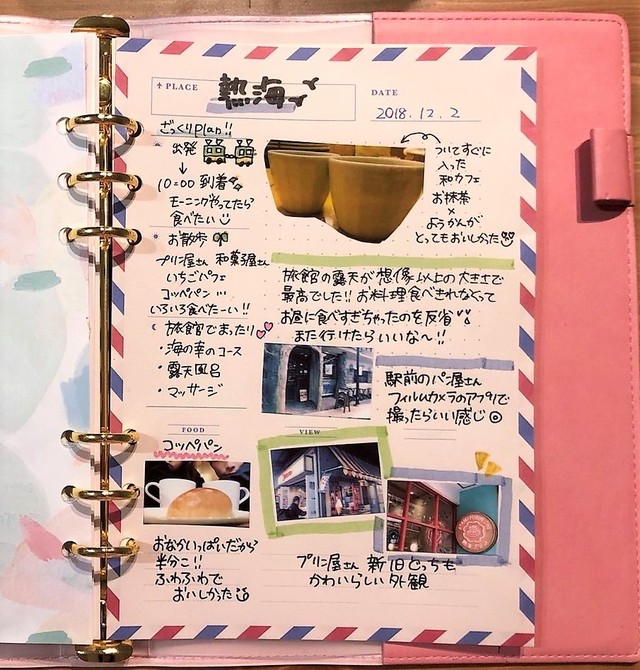 ↑PLACE
熱海
DATE
2018.12.2
ざっくりplan!!
出発
↓
10:00 到着
モーニングやってたら
食べたい
お散歩
プリン屋さん 和菓子屋さん
いちごパフェ
コッペパン…
いろいろ食べたーい!!
旅館でまったり
・海の幸のコース
・露天風呂
・マッサージ
ついてすぐに
入った
和カフェ
お抹茶
×
ようかんが
とってもおいしかった
旅館の露天が想像以上の大きさで
最高でした!! お料理食べきれなくって
お昼に食べすぎちゃったのを反省
また行けたらいいな〜!!
駅前のパン屋さん
フィルムカメラのアプリで
撮ったらいい感じ
FOOD
コッペパン
VIEW
おなかいっぱいだから
半分こ!!
ふわふわで
おいしかった
プリン屋さん 新旧どっちも
かわいらしい外観